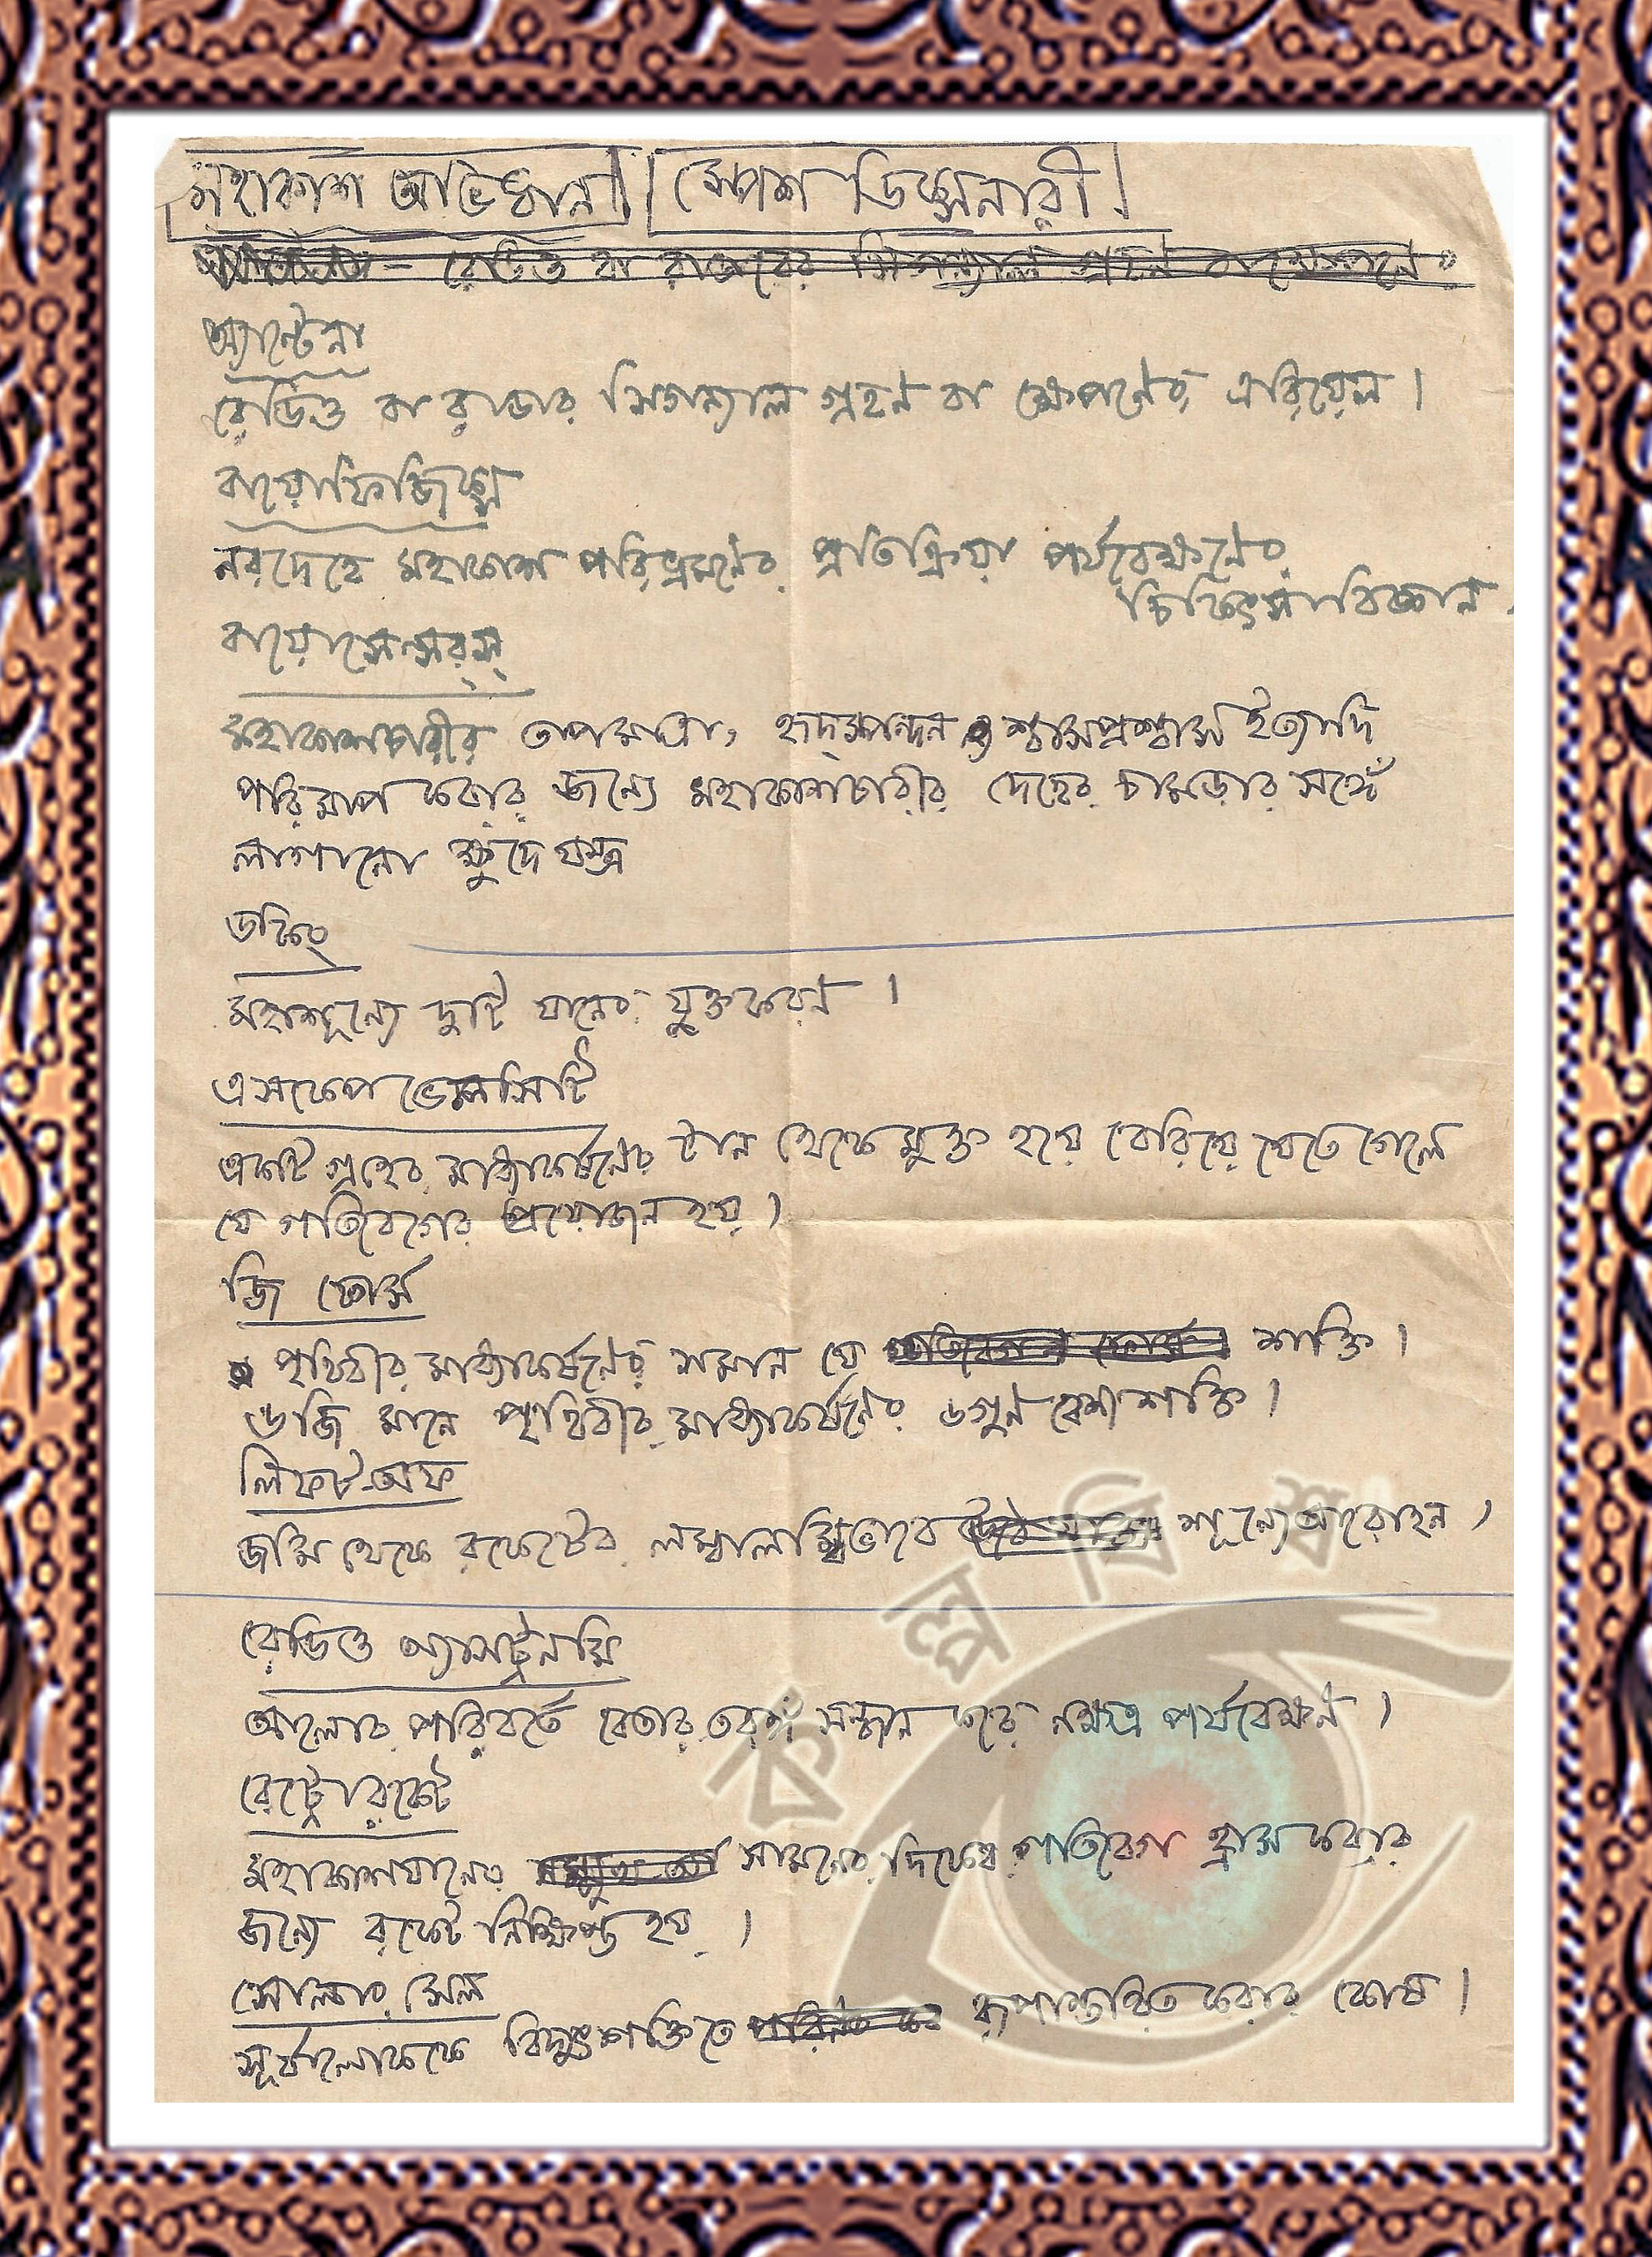 মহাকাশ অভিধান। স্পেশ ডিক্সনারী।
অ্যান্টেনা - রেডিও বা রাডারের সিগন্যাল গ্রহণ বা ক্ষেপণের
অ্যান্টেনা
রেডিও বা রাডার সিগন্যাল গ্রহণ বা ক্ষেপণের এরিয়েল।
বায়োফিজিক্স
নরদেহে মহাকাশ পরিভ্রমণের প্রতিক্রিয়া পর্যবেক্ষণের
চিকিৎসাবিজ্ঞান।
বায়োসেন্সর্‌স্‌
মহাকাশচারীর তাপমাত্রা, হৃদ্‌স্পন্দন ও শ্বাসপ্রশ্বাস ইত্যাদি
পরিমাপ করার জন্যে মহাকাশচারীর দেহের চামড়ার সঙ্গে
লাগানো ক্ষুদে যন্ত্র
ডকিং
মহাশূন্যে দুটি যানের যুক্তকরণ।
এসকেপ ভেলসিটি
একটি গ্রহের মাধ্যাকর্ষণের টান থেকে মুক্ত হয়ে বেরিয়ে যেতে গেলে
যে গতিবেগের প্রয়োজন হয়।
জি ফোর্স
পৃথিবীর মাধ্যাকর্ষণের সমান যে শক্তি।
৬জি মানে পৃথিবীর মাধ্যাকর্ষণের ৬গুণ বেশী শক্তি।
লিফট-অফ
জমি থেকে রকেটের লম্বালম্বিভাবে শূন্যে আরোহন।
রেডিও অ্যাসট্রনমি
আলোর পরিবর্তে বেতার তরঙ্গ সন্ধান করে নক্ষত্র পর্যবেক্ষণ।
রেট্রোরকেট
মহাকাশযানের সামনের দিকের গতিবেগ হ্রাস করার
জন্যে রকেট নিক্ষিপ্ত হয়।
সোলার সেল
সূর্যালোককে বিদ্যুৎশক্তিতে রূপান্তরিত করার কোষ।
কল্পবিশ্ব